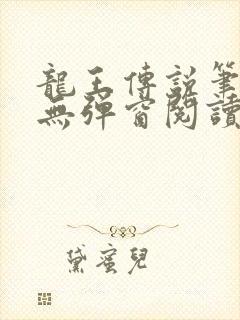 龍王傳説筆
無彈窗閱讀
黛蜜兒